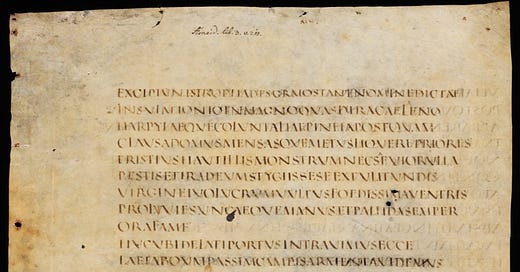 Aeneid. lib. 3. v. 210.
EXCIPIUNTSTROPHADESGRAIOSTANTNOMINEDICTAE
INSULAEIONIOINMAGNOQVASDIRACAELENO
HARPYIAEQVECOLUNTALIAEPHINEIAPOSTQVAM
CLAUSADOMUSMENSASQVEMETVLIQVEREPRIORES
TRISTIUSHAUTILLISMONSTRUMNECSEVIORULLA
PESTISETIRADEUMSTYGIISSESEEXTULITUNDIS
VIRGINEIVOLVCRUMVULTUSFOEDISSIMAVENTRIS
PROLVVIESUNCAEQVEMANUSETPALLIDASEMPER
ORAFAME
HVCUBIDELATIPORTUSINTRAVIMUSECCE
LAETABOVMPASSIMCAMPISARMENTAVIDEMUS